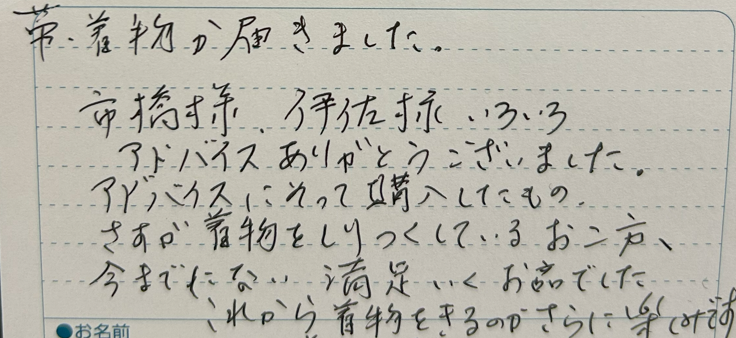 帯、着物が届きました。
市橋様、伊佐様、いろいろ
アドバイスありがとうございました。
アドバイスにそって購入したもの、
さすが着物をしりつくしているお二方、
今までにない満足いくお品でした
これから着物をきるのがさらに楽しみです
●お名前